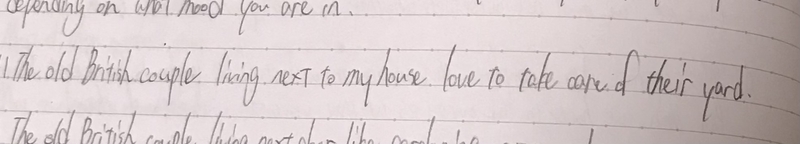 depending on what mood you are in.
1. The old British couple living next to my house love to take care of their yard.
The old British couple living next door like